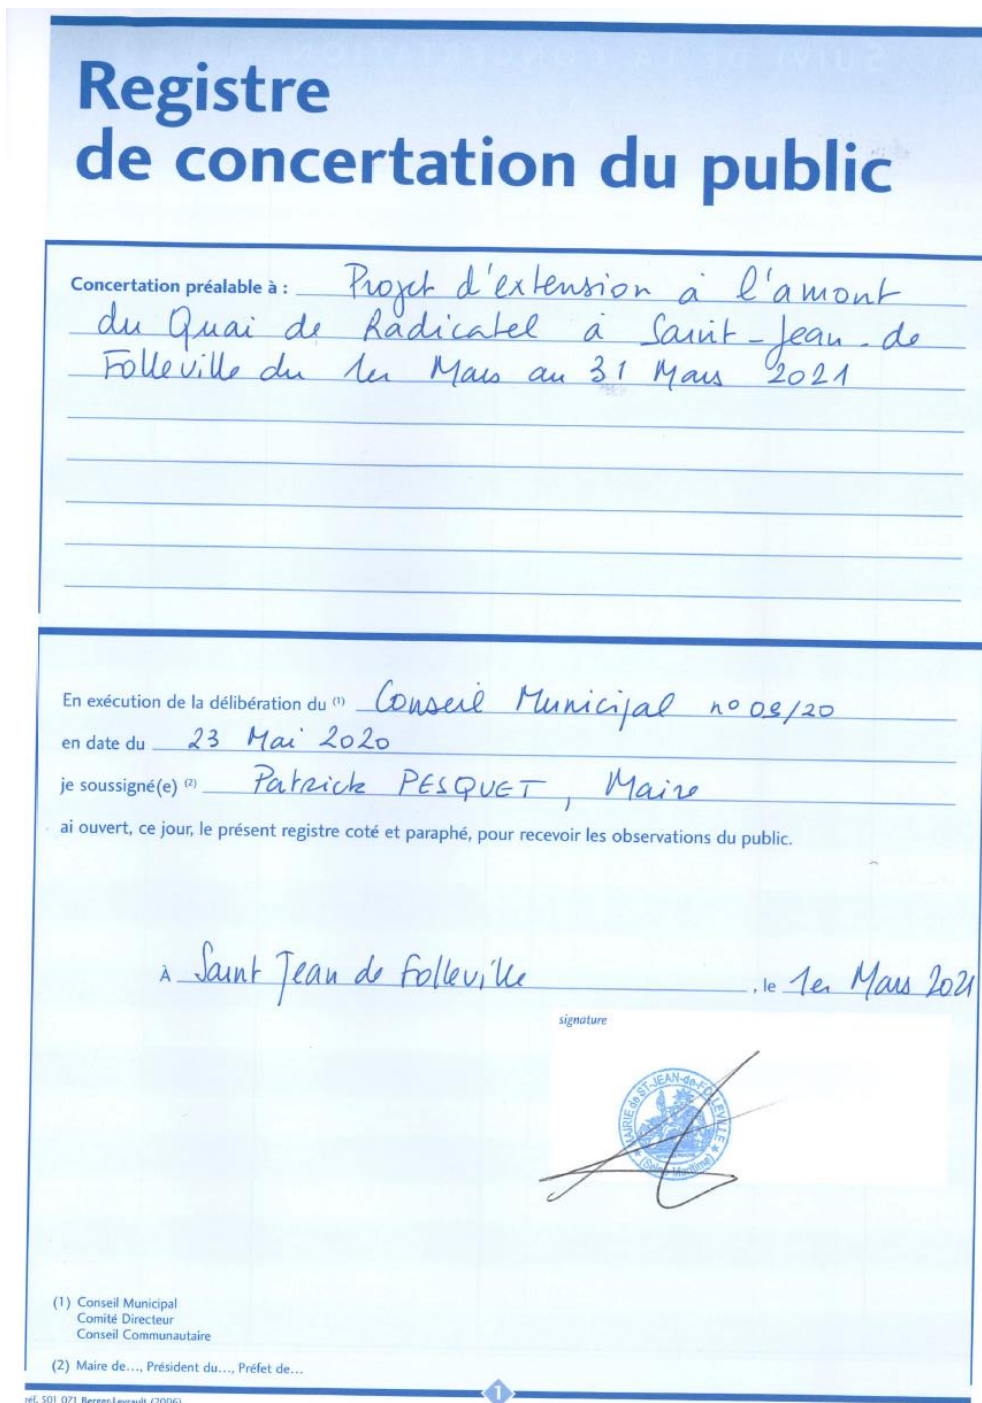 Registre
de concertation du public
Concertation préalable à : Projet d'extension à l'amont
du Quai de Radicatel à Saint-Jean-de
Folleville du 1er Mars au 31 Mars 2021
En exécution de la délibération du (1) Conseil Municipal n° 09/20
en date du 23 Mai 2020
je soussigné(e) (2) Patrick PESQUET, Maire
ai ouvert, ce jour, le présent registre coté et paraphé, pour recevoir les observations du public.
À Saint Jean de Folleville, le 1er Mars 2021
signature
MAIRIE de ST-JEAN-de-FOLLEVILLE
(Seine-Maritime)
(1) Conseil Municipal
Comité Directeur
Conseil Communautaire
(2) Maire de..., Président du..., Préfet de...
réf. 501 071 Berger-Levrault (2006)
1